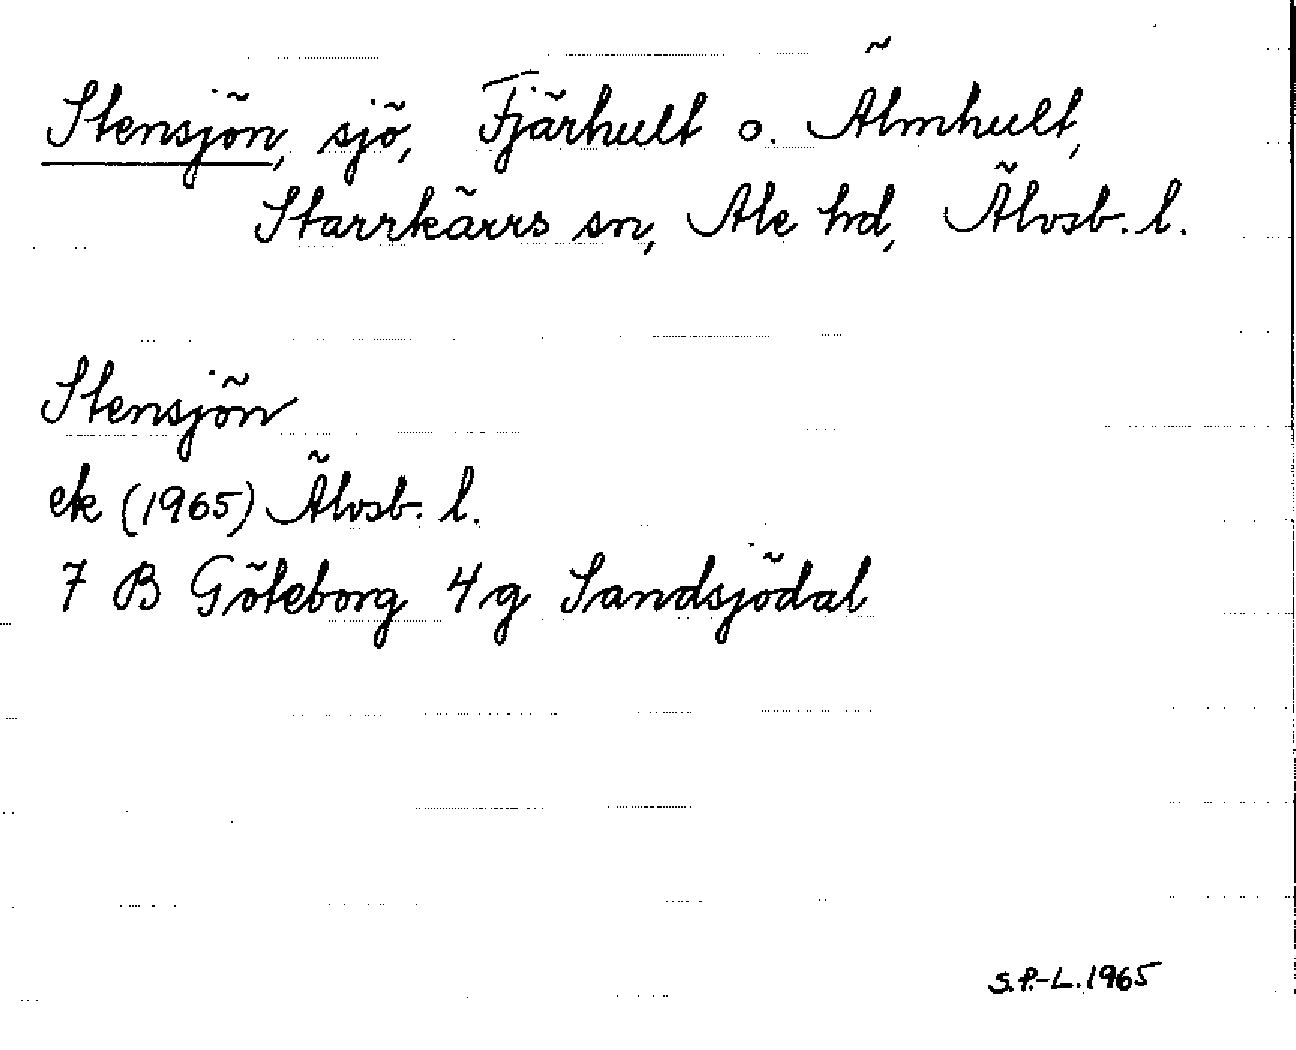 Stensjön, sjö, Fjärhult o. Älmhult,
Starrkärrs sn, Ale hd, Älvsb. l.
Stensjön
ek (1965) Älvsb. l.
7 B Göteborg 4 g Sandsjödal
S.P.-L. 1965